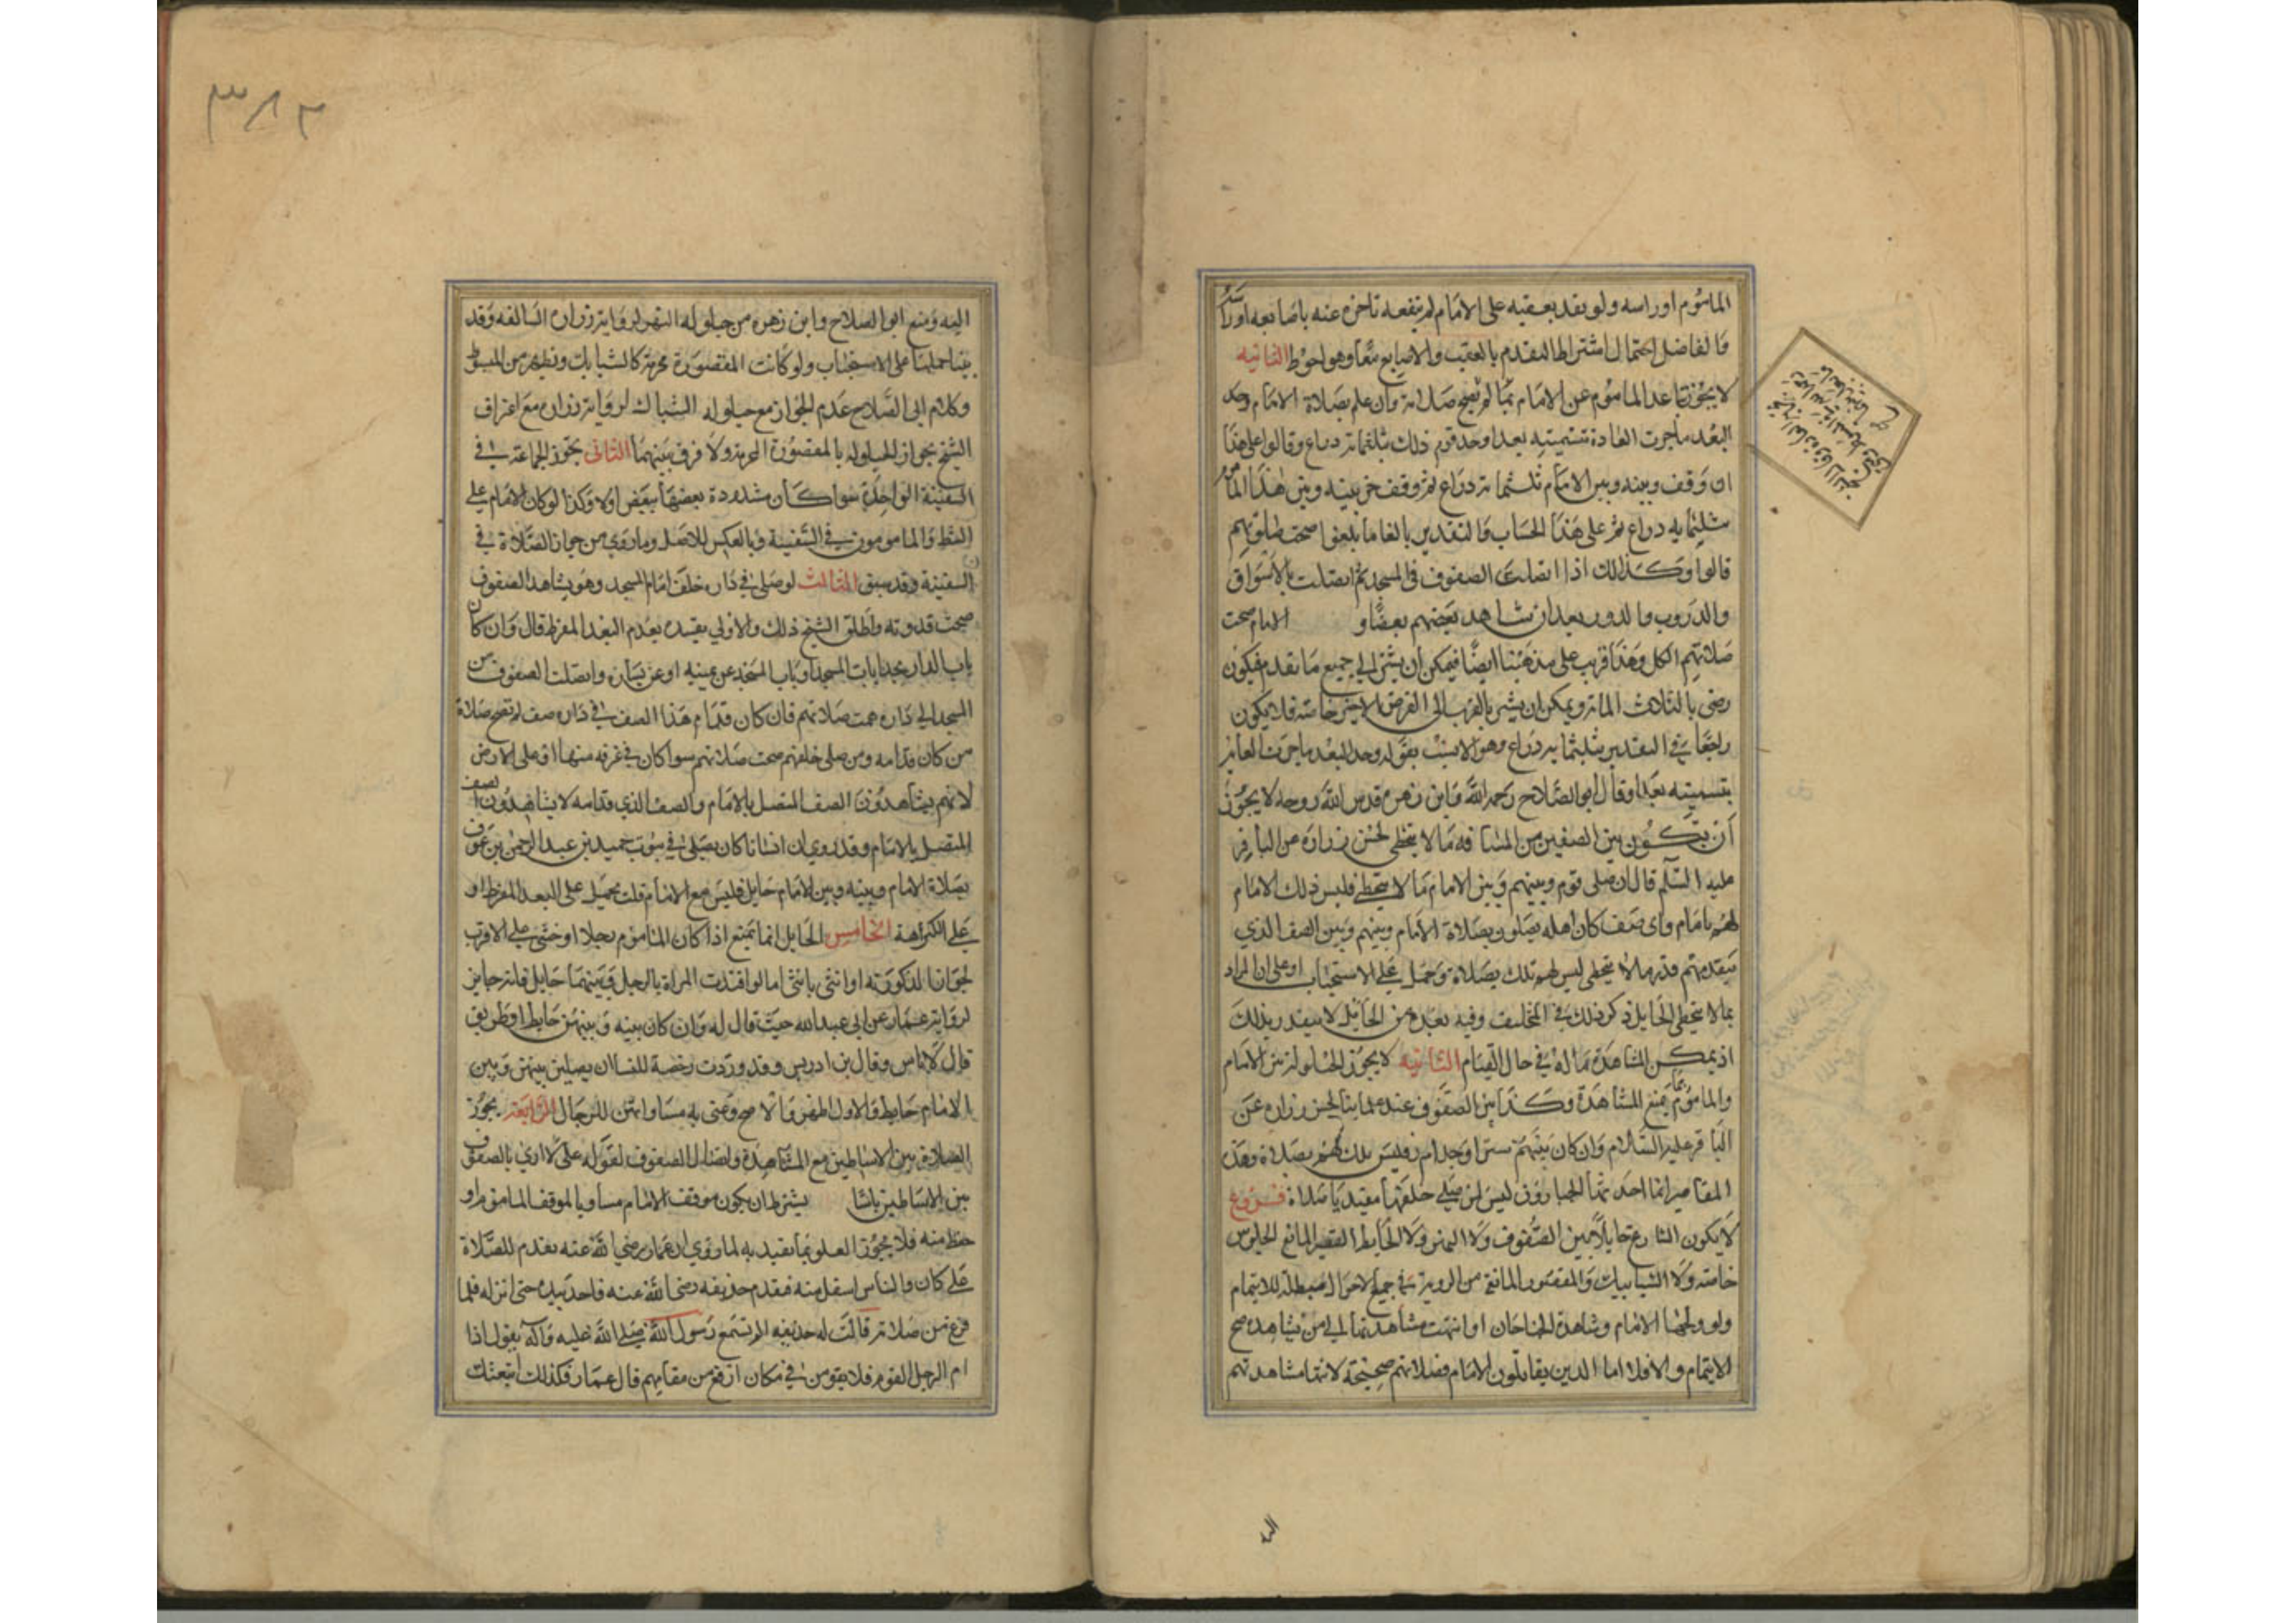 الماموم او راسه ولو تقدم بعقبه على الامام لم ينفعه تاخره عنه باصابعه او راسه
وللفاضل احتمال اشتراط التقدم بالعقب والاصابع معا وهو احوط الثانيه
لا يجوز تباعد الماموم عن الامام بما لم تصح صلاته وان علم بصلاة الامام وحد
البعد ما جرت العادة بتسميته بعدا وحد قوم ذلك بثلثماية دراع وقالوا على هذا
ان وقف وبينه وبين الامام ثلثماية دراع ثم وقف اخر بينه وبين هذا الماموم
ثلثمايه دراع ثم على هذا الحساب والتقدير بالغا ما بلغوا صحت صلوتهم
قالوا وكذلك اذا اتصلت الصفوف فى المسجد ثم اتصلت بالاسواق
والدروب والدور بعد ان شاهد بعضهم بعضا و الامام صحت
صلاتهم الكل وهذا قريب على مذهبنا ايضا فيمكن ان يشير الى جميع ما تقدم فيكون
رضى بالثلاث الماية ويمكن ان يشير بالقرب الى الفرض الاخير خاصة فلا يكون
راجعا في التقدير بثلثماية دراع وهو الانسب بقوله وحد البعد ما جرت العادة
بتسميته بعدا وقال ابو الصلاح رحمه الله وابن زهره قدس الله روحه لا يجوز
ان يكون بين الصفين من المسافه ما لا يتخطى لحسن زراره عن الباقر
عليه السلم قال ان صلى قوم وبينهم وبين الامام ما لا يتخطى فليس ذلك الامام
لهم بامام واى صف كان اهله يصلون بصلاة الامام وبينهم وبين الصف الذي
يتقدمهم قدر ما لا يتخطى ليس لهم تلك بصلاة وحمل على الاستحباب او على ان المراد
بما لا يتخطى الحايل ذكر ذلك في المختلف وفيه بعد من الحايل لا يتقدر بذلك
اذ يمكن المشاهدة ماله في حال القيام الثانيه لا يجوز الحيلولة بين الامام
والماموم بما يمنع المشاهدة وكذا بين الصفوف عند علماينا لحسن زراره عن
الباقر عليه السلام وان كان بينهم ستر او جدار فليس تلك لهم بصلاة وهذه
المقاصير انما احدثها الجبارون ليس لمن صلى خلفها مقتديا صلاة فروع
لا يكون الشارع حايلا بين الصفوف ولا النهر ولا الحايط القصير المانع الجلوس
خاصة ولا الشبابيك والمقصورة المانعة من الروية في جميع الاحوال مبطلة للايتمام
ولو ولجها الامام وشاهده الجناحان او انتهت مشاهدتها الى من يشاهده صح
الايتمام والا فلا اما الذين يقابلون الامام فصلاتهم صحيحة لانتها مشاهدتهم
اليه
٣٨٢
اليه ومنع ابو الصلاح وابن زهره من حيلوله النهر لرواية زراره السالفه وقد
بينا حملها على الاستحباب ولو كانت المقصورة مخرمة كالشبابيك ونظيره من المبسوط
وكلام ابى الصلاح عدم الجواز مع حيلوله الشباك لرواية زراره مع اعتراف
الشيخ بجواز الحيلوله بالمقصورة المخرمة ولا فرق بينهما الثانى تجوز الجماعة في
السفينة الواحدة سوا كان مشدودة بعضها ببعض او لا وكذا لو كان الامام على
الشط والمامومون في السفينة وبالعكس للاصل وما روي من جواز الصلاة في
السفينة وقد سبق الثالث لو صلى في داره خلف امام المسجد وهو يشاهد الصفوف
صحت قدوته واطلق الشيخ ذلك والاولى تقييده بعدم البعد المفرط قال وان كان
باب الدار بحذا باب المسجد او باب المسجد عن يمينه او عن يساره واتصلت الصفوف من
المسجد الى داره صحت صلاتهم فان كان قدام هذا الصف في داره صف لم تصح صلاة
من كان قدامه ومن صلى خلفهم صحت صلاتهم سوا كان في غرفه منها او على الارض
لانهم يشاهدون الصف المتصل بالامام والصف الذي قدامه لا يشاهدون الصف
المتصل بالامام وقد روي ان انسانا كان يصلى في بيوت حميد بن عبد الرحمن بن عوف
بصلاة الامام وبينه وبين الامام حايل فليس مع الامام قلت يحمل على البعد المفرط او
على الكراهة الخامس الحايل انما يمنع اذا كان الماموم رجلا او خنثى على الاقرب
لجواز الذكوريه او انثى بانثى اما لو اقتدت المراة بالرجل وبينهما حايل فانه جايز
لرواية عمار عن ابي عبد الله حيث قال له وان كان بينه وبينهن حايط او طريق
قال لا باس وقال بن ادريس وقد وردت رخصة للنسا ان يصلين بينهن وبين
الامام حايط والاول اظهر والاصح وعنى به مساواتهن للرجال الرابعه يجوز
الصلاة بين الاساطين مع المشاهدة واتصال الصفوف لقوله على لا ارى بالصفوف
بين الاساطين باسا يشترط ان يكون موقف الامام مساويا لموقف الماموم او
اخفض منه فلا يجوز العلو بما يعتد به لما روي ان عمار رضي الله عنه تقدم للصلاة
على كان والناس اسفل منه فتقدم حذيفه رضى الله عنه فاخد بيده حتى انزله فلما
فرغ من صلاته قالت له حذيفه الم تسمع رسول الله صلى الله عليه وآله يقول اذا
ام الرجل القوم فلا يقومن في مكان ارفع من مقامهم قال عمار فلذلك اتبعتك